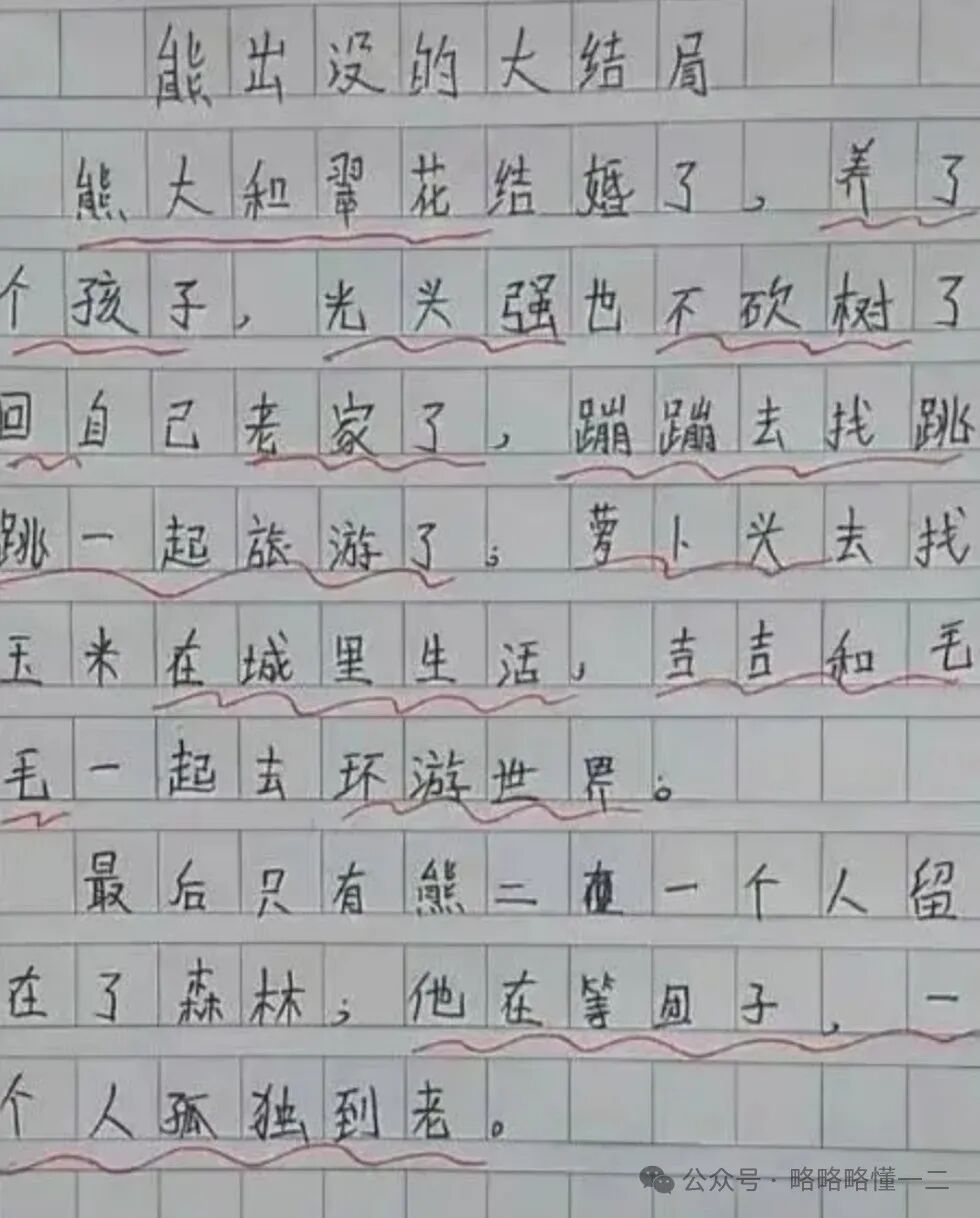 熊出没的大结局
熊大和翠花结婚了，养了
个孩子，光头强也不砍树了
回自己老家了，蹦蹦去找跳
跳一起旅游了；萝卜头去找
玉米在城里生活，吉吉和毛
毛一起去环游世界。
最后只有熊二一个人留
在了森林；他在等团子，一
个人孤独到老。
公众号·略略略懂一二